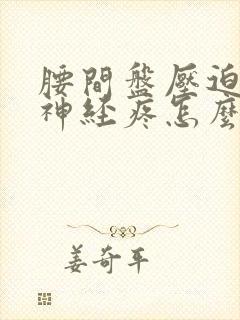 腰間盤壓迫
神経疼怎麼
姜奇平